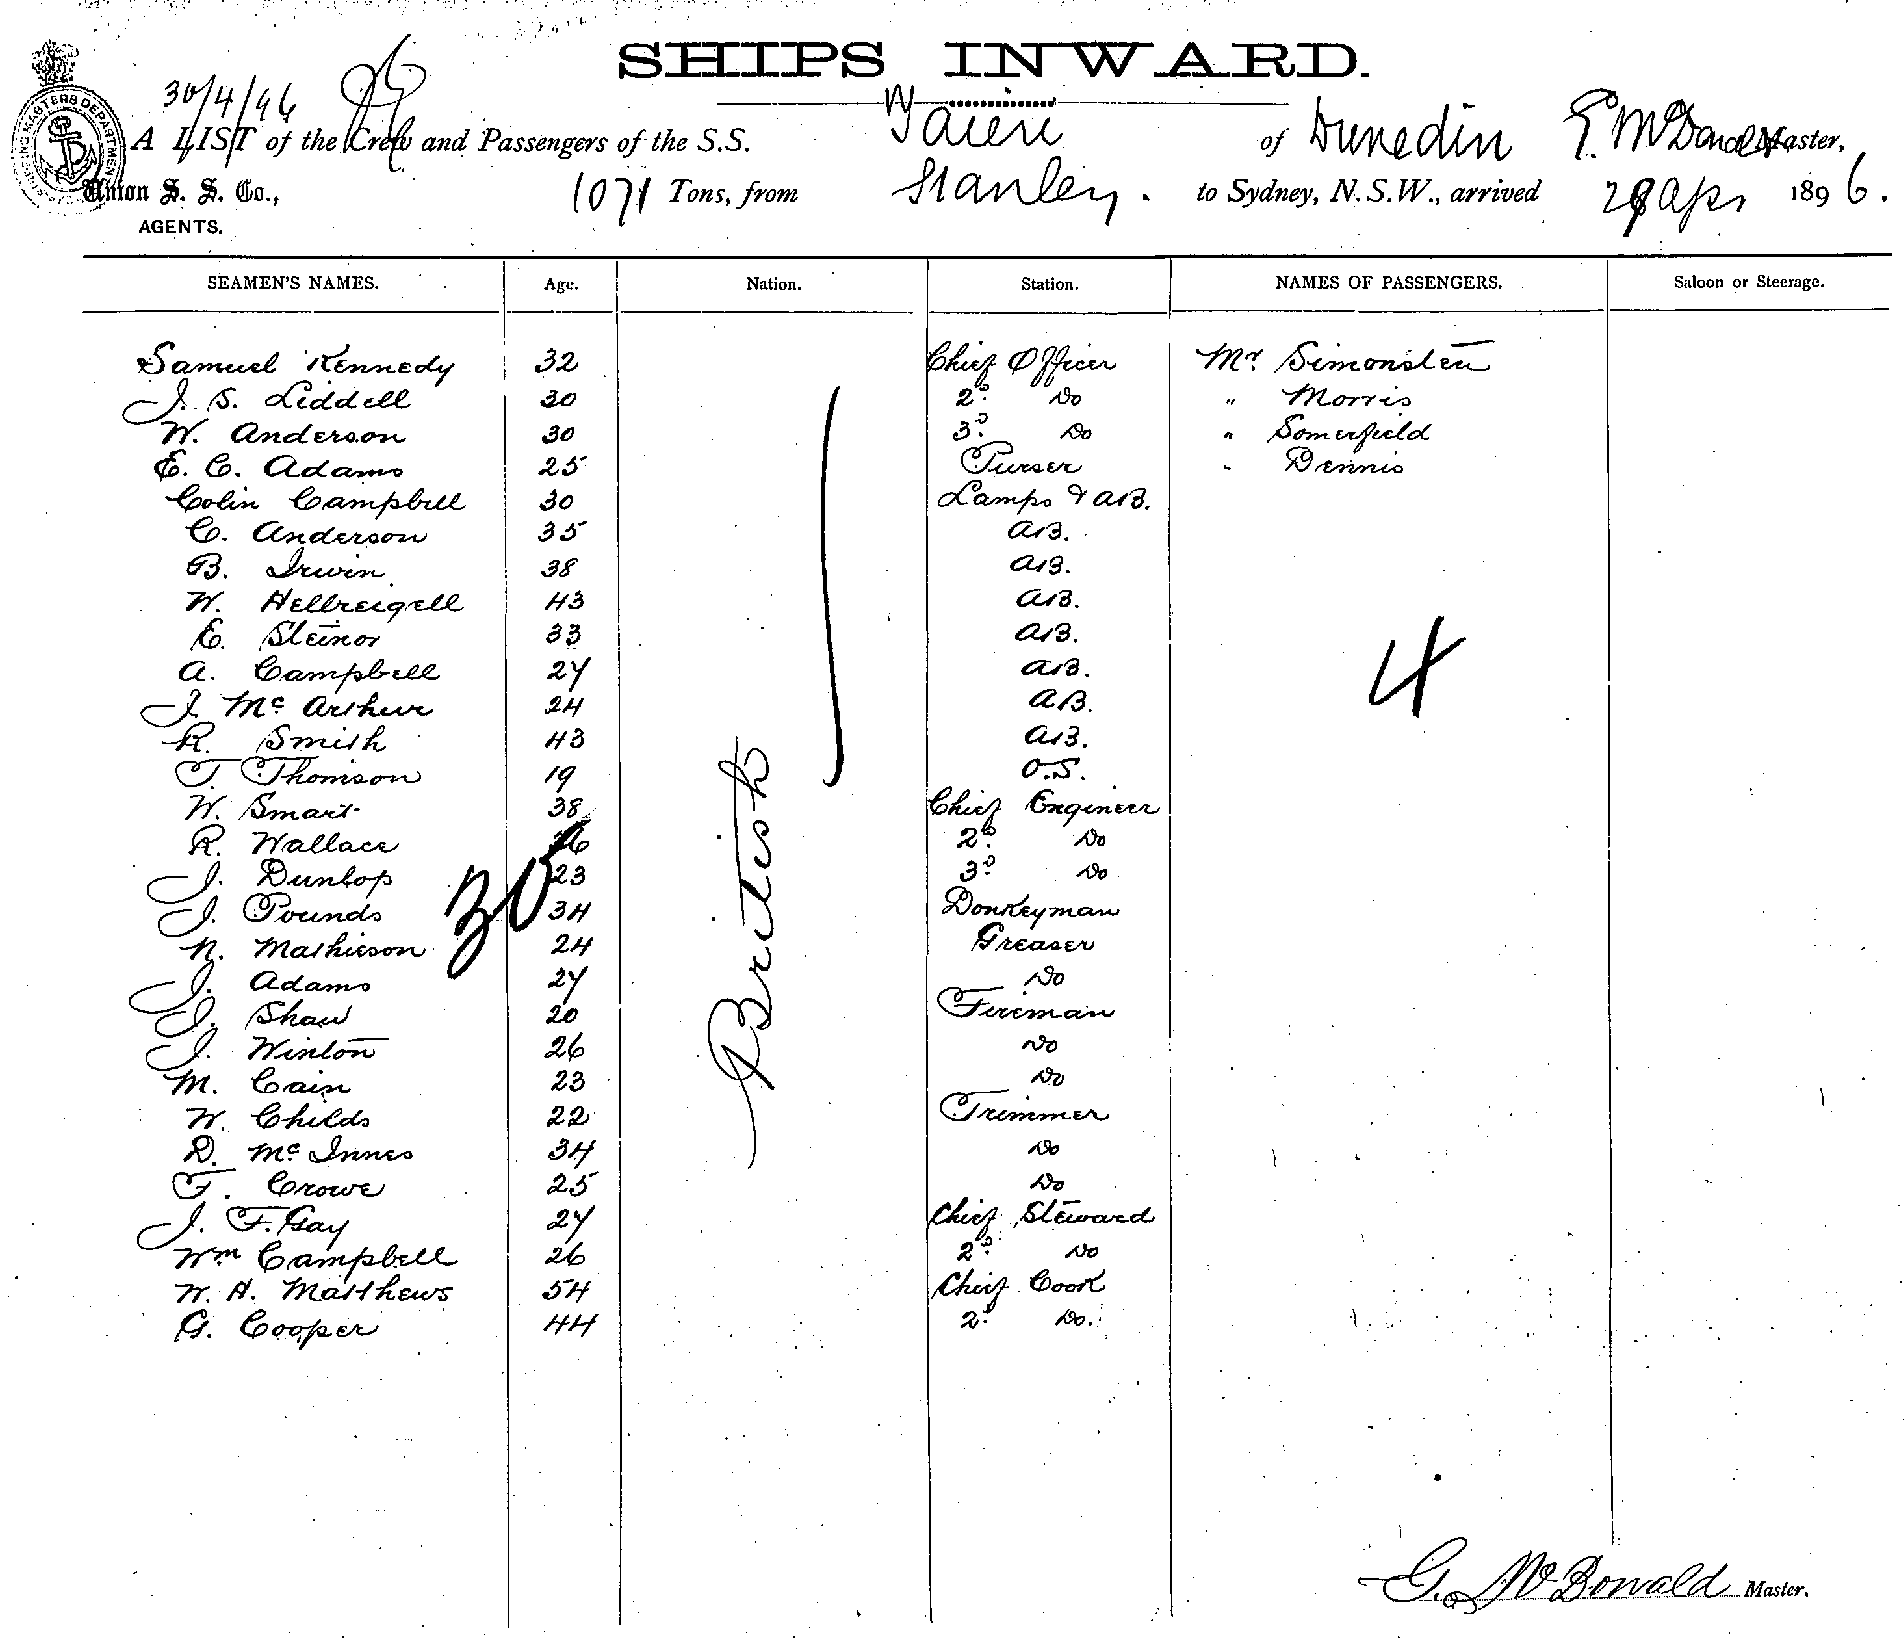 SHIPS INWARD.
30/4/96
A LIST of the Crew and Passengers of the S.S. Taieri of Dunedin G. McDonald Master,
Union S. S. Co., 1071 Tons, from Stanley. to Sydney, N.S.W., arrived 29 Apr 1896.
AGENTS.
SEAMEN'S NAMES. Age. Nation. Station. NAMES OF PASSENGERS. Saloon or Steerage.
Samuel Kennedy 32 Chief Officer Mr Simonsten
J. S. Liddell 30 2D Do " Morris
W. Anderson 30 3D Do " Somerfield
E. C. Adams 25 Purser " Dennis
Colin Campbell 30 Lamps & AB.
C. Anderson 35 AB.
B. Irwin 38 AB.
W. Hellreigell 43 AB.
E. Steinor 33 AB.
A. Campbell 27 AB.
J. McArthur 24 AB.
R. Smith 43 AB.
T. Thomson 19 O.S.
W. Smart 38 Chief Engineer
R. Wallace 26 2D Do
J. Dunlop 23 3D Do
J. Pounds 34 Donkeyman
N. Mathieson 24 Greaser
J. Adams 27 Do
J. Shaw 20 Fireman
J. Winton 26 Do
M. Cain 23 Do
W. Childs 22 Trimmer
D. McInnes 34 Do
F. Crowe 25 Do
J. F. Gay 27 Chief Steward
Wm Campbell 26 2D Do
W. H. Matthews 54 Chief Cook
G. Cooper 44 2D Do.
British
30
4
G. McDonald Master.